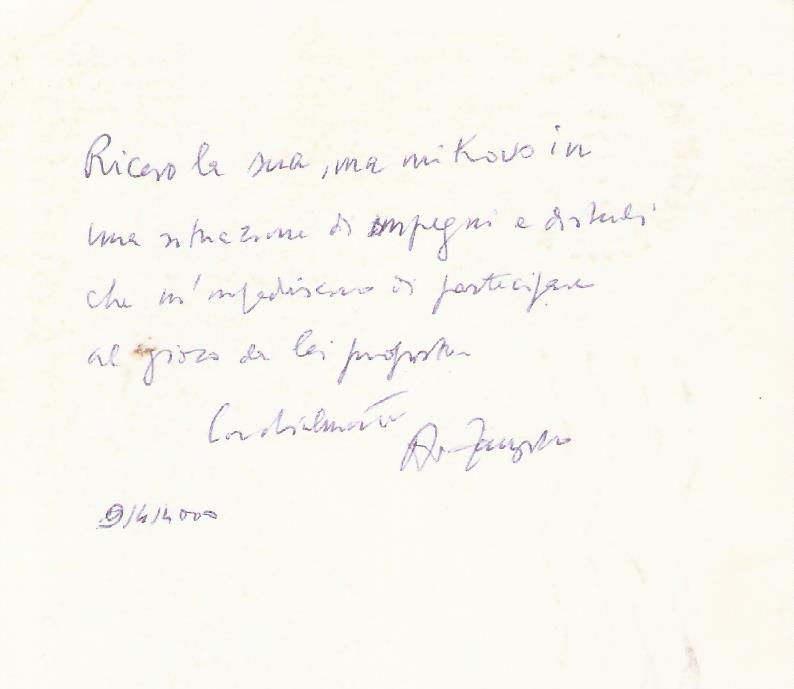 Ricevo la sua, ma mi trovo in
una situazione di impegni e disturbi
che m'impediscono di partecipare
al gioco da lei proposto
Cordialmente
A. Zanzotto
9/4/2000